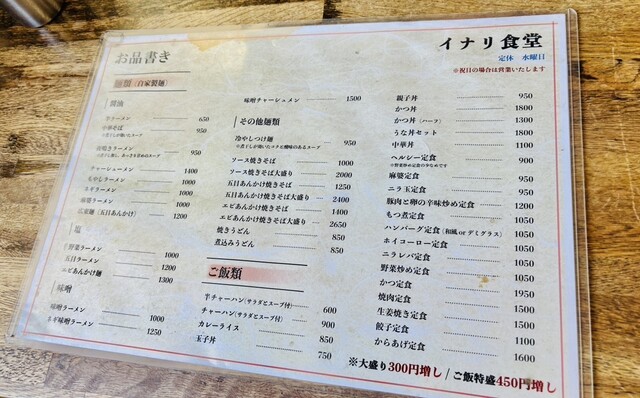 お品書き
麺類（自家製麺）
醤油
半ラーメン 650
中華そば 950
チャーシューメン 1400
もやしラーメン 1000
ネギラーメン 1000
麻婆ラーメン 1000
広東麺（五目あんかけ） 1200
塩
野菜ラーメン 1000
五目ラーメン 1200
エビあんかけ麺 1300
味噌
味噌ラーメン 1000
ネギ味噌ラーメン 1250
味噌チャーシュメン 1500
その他麺類
冷やしつけ麺 950
ソース焼きそば 1000
ソース焼きそば大盛り 2000
五目あんかけ焼きそば 1250
五目あんかけ焼きそば大盛り 2400
エビあんかけ焼きそば 1400
エビあんかけ焼きそば大盛り 2650
焼きうどん 850
煮込みうどん 850
ご飯類
半チャーハン（サラダとスープ付） 600
チャーハン（サラダとスープ付） 900
カレーライス 850
玉子丼 750
イナリ食堂
定休 水曜日
※祝日の場合は営業いたします
親子丼 950
かつ丼 1800
かつ丼（ハーフ） 1300
うな丼セット 1800
中華丼 1100
ヘルシー定食 900
麻婆定食 950
ニラ玉定食 950
豚肉と卵の辛味炒め定食 1200
もつ煮定食 1100
ハンバーグ定食（和風 or デミグラス） 1100
ホイコーロー定食 1050
ニラレバ定食 1050
野菜炒め定食 1050
かつ定食 1950
焼肉定食 1950
生姜焼き定食 1500
餃子定食 1100
からあげ定食 1600
※大盛り300円増し / ご飯特盛450円増し